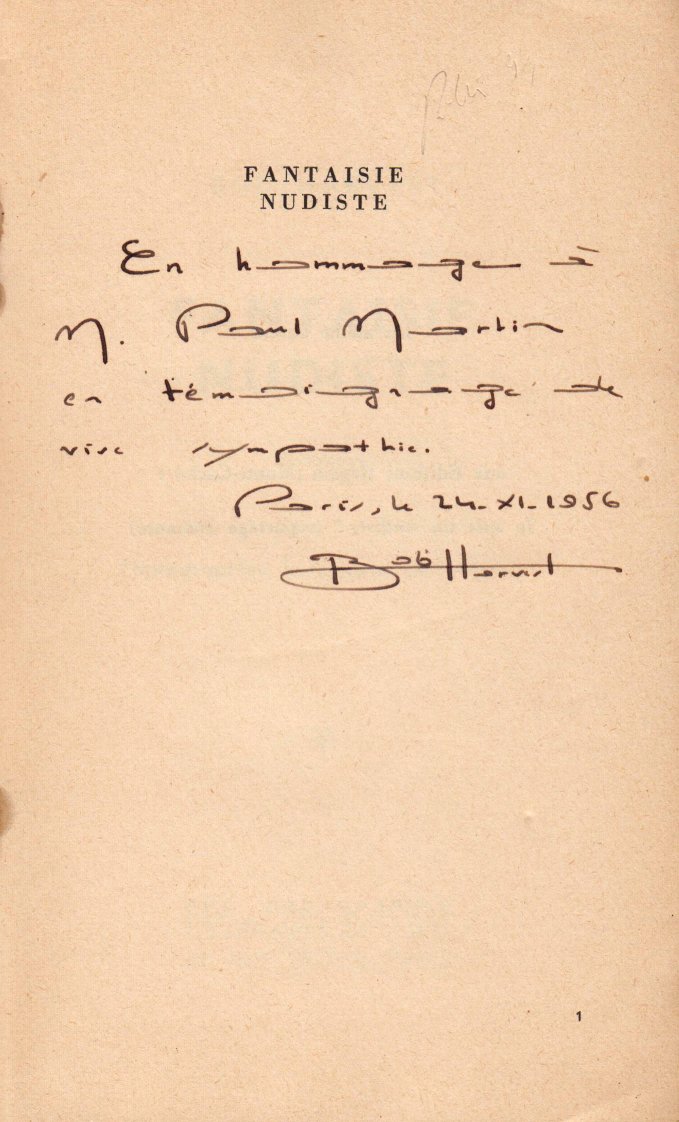 FANTAISIE
NUDISTE
En hommage à
M. Paul Martin
en témoignage de
vive sympathie.
Paris, le 24-XI-1956
Bob
1